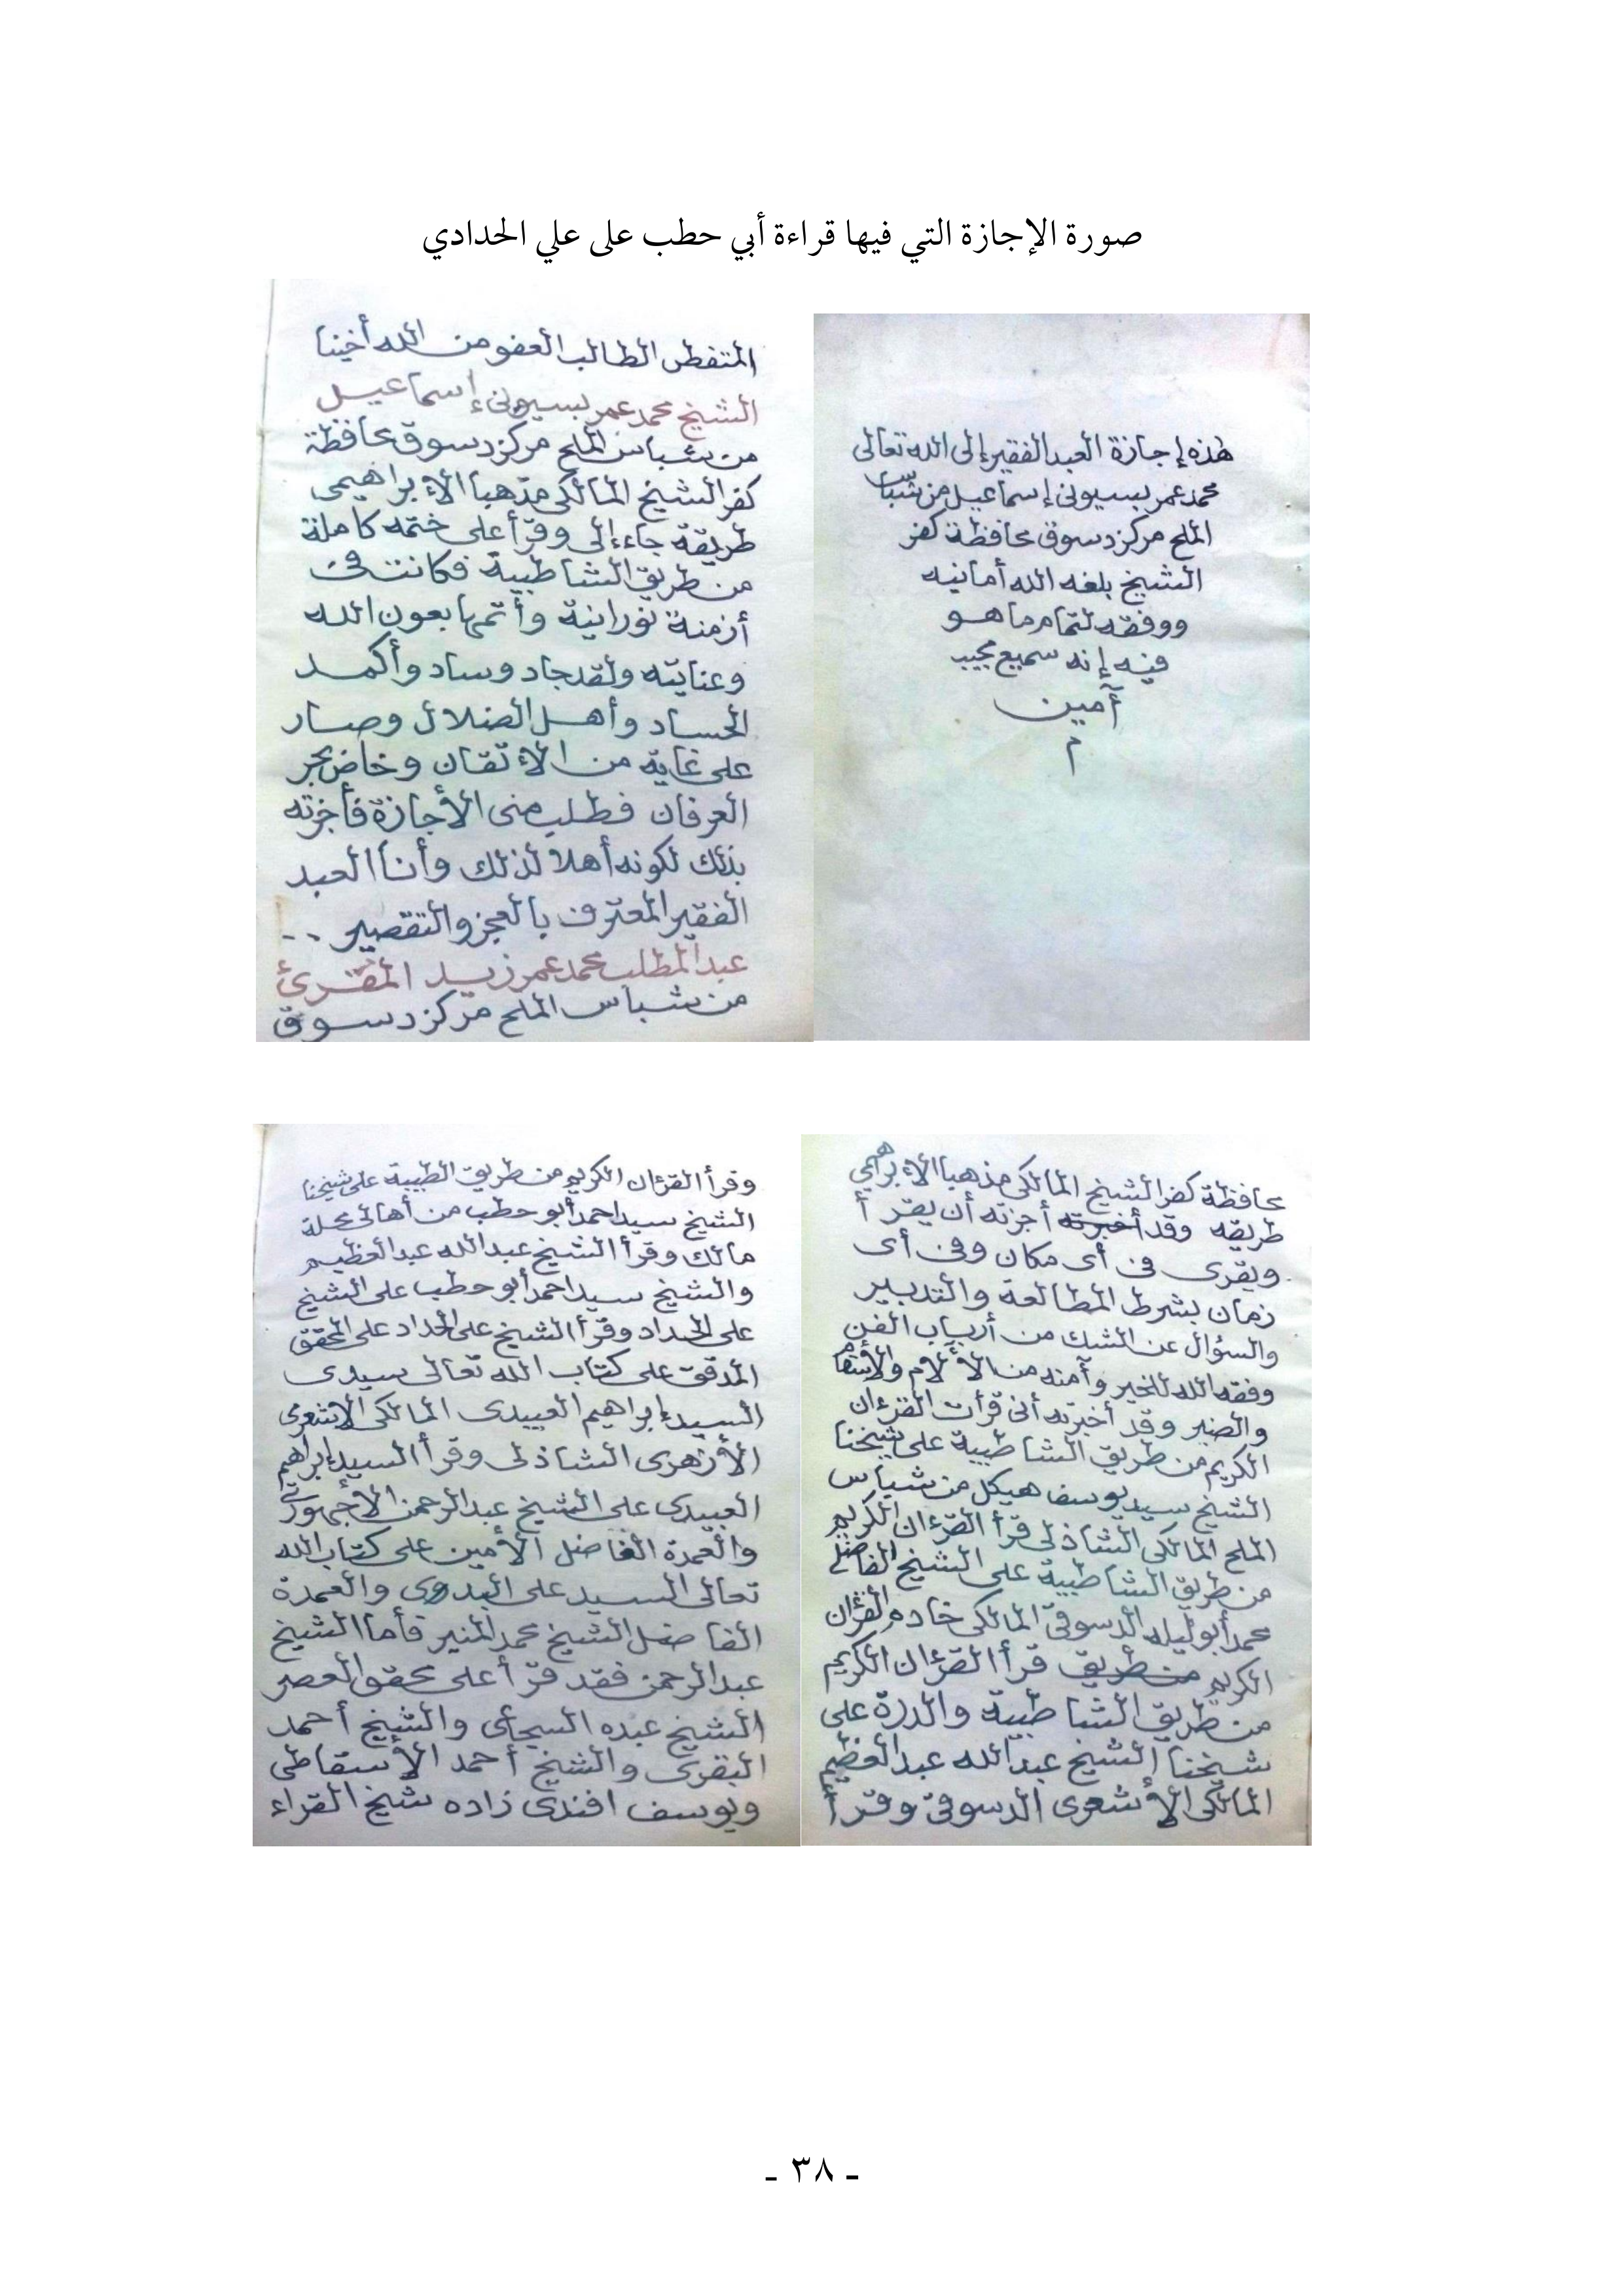 صورة الإجازة التي فيها قراءة أبي حطب على علي الحدادي
هذه إجازة العبد الفقير إلى الله تعالى
محمد عمر بسيونى إسماعيل من شباس
الملح مركز دسوق محافظة كفر
الشيخ بلغه الله أمانيه
ووفقه لتمام ما هو
فيه إنه سميع مجيب
آمين
م
المتفطن الطالب العفو من الله أخينا
الشيخ محمد عمر بسيونى إسماعيل
من شباس الملح مركز دسوق محافظة
كفر الشيخ المالكى مذهبا الإبراهيمى
طريقة جاء إلى وقرأ على ختمه كاملة
من طريق الشاطبية فكانت فى
أزمنة نورانية وأتمها بعون الله
وعنايته ولقد جاد وساد وأكمد
الحساد وأهل الضلال وصار
على غاية من الإتقان وخاض بحر
العرفان فطلب منى الأجازة فأجزته
بذلك لكونه أهلا لذلك وأنا العبد
الفقير المعترف بالعجز والتقصير ..
عبد المطلب محمد عمر زيد المقرئ
من شباس الملح مركز دسوق
محافظة كفر الشيخ المالكى مذهبا الإبراهيمي
طريقه وقد أخبرته أجزته أن يقرأ
ويقرى فى أى مكان وفى أى
زمان بشرط المطالعة والتدبير
والسؤال عن الشك من أرباب الفن
وفقه الله للخير وآمنه من الألام والأسقام
والضير وقد أخبرته أنى قرأت القرءان
الكريم من طريق الشاطبية على شيخنا
الشيخ سيد يوسف هيكل من شباس
الملح المالكى الشاذلى قرأ القرءان الكريم
من طريق الشاطبية على الشيخ الفاضل
محمد أبو ليله الدسوقى المالكى خادم القرءان
الكريم من طريق قرأ القرءان الكريم
من طريق الشاطبية والدرة على
شيخنا الشيخ عبد الله عبد العظيم
المالكى الأشعرى الدسوقى وقرأ
وقرأ القرءان الكريم من طريق الطيبة على شيخنا
الشيخ سيد احمد أبو حطب من أهالى محلة
مالك وقرأ الشيخ عبد الله عبد العظيم
والشيخ سيد احمد أبو حطب على الشيخ
على الحداد وقرأ الشيخ على الحداد على المحقق
المدقق على كتاب الله تعالى سيدى
السيد إبراهيم العبيدى المالكى الاشعرى
الأزهرى الشاذلى وقرأ السيد إبراهيم
العبيدى على الشيخ عبد الرحمن الأجهورى
والعمدة الفاضل الأمين على كتاب الله
تعالى السيد على البدرى والعمدة
الفاضل الشيخ محمد المنير فأما الشيخ
عبد الرحمن فقد قرأ على محقق العصر
الشيخ عبده السجاعى والشيخ أحمد
البقرى والشيخ أحمد الإسقاطى
ويوسف افندى زاده شيخ القراء
- ٣٨ -